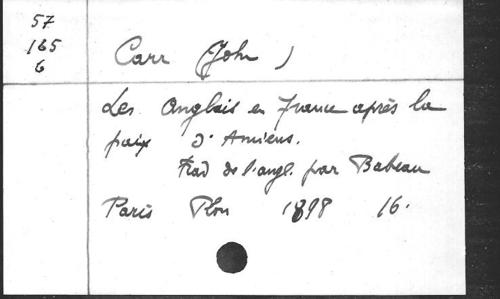 57
165
6
Carr (John)
Les Anglais en France après la
paix d'Amiens.
Trad de l'angl. par Babeau
Paris Plon 1898 16.